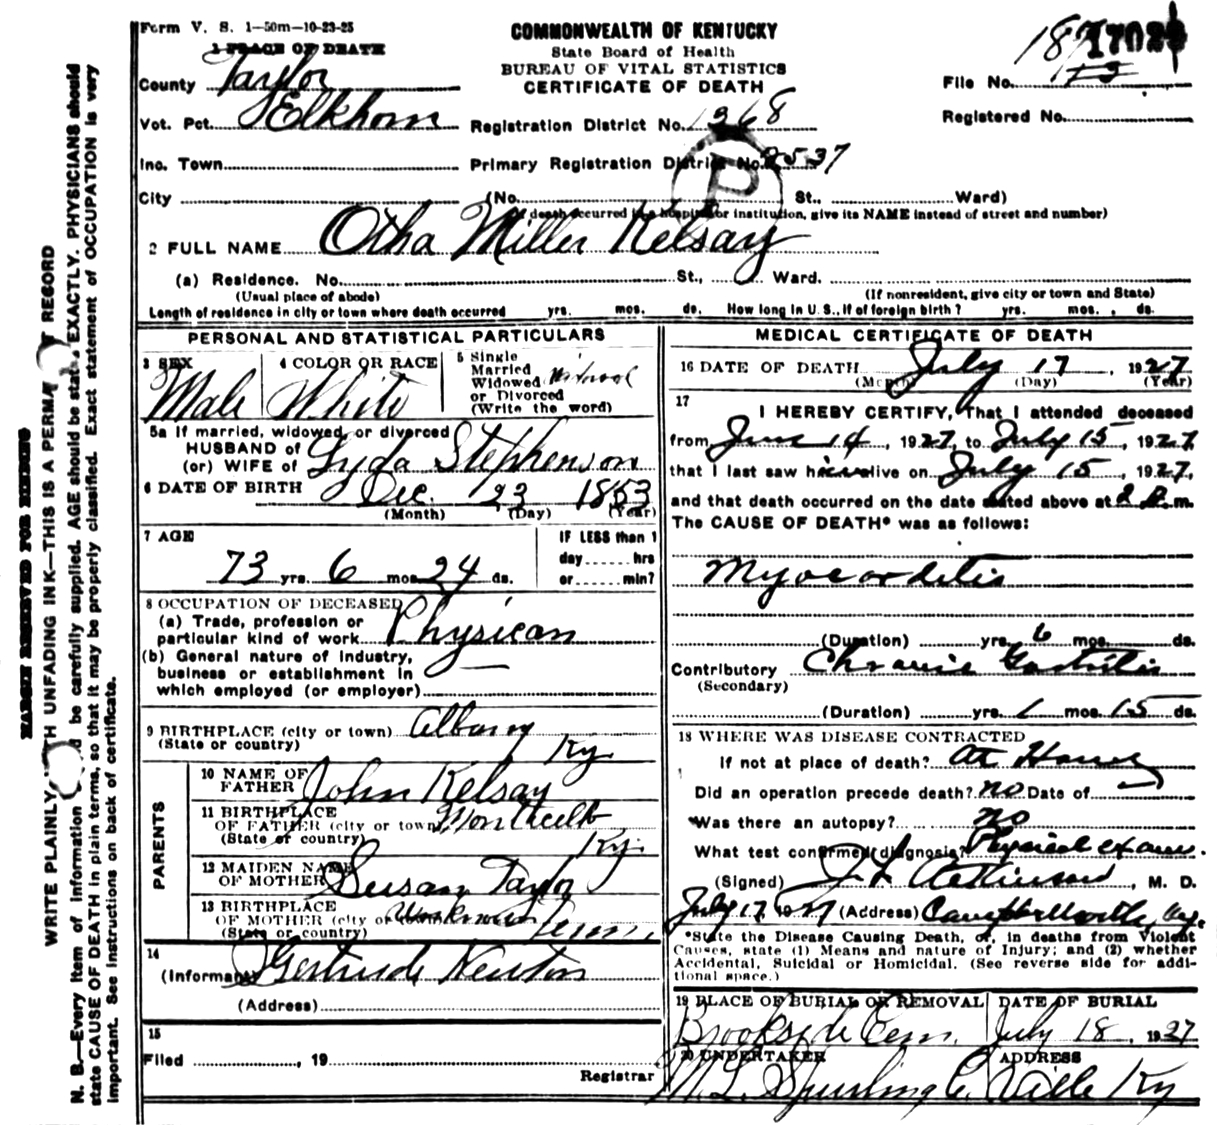 Form V. S. 1—50m—10-23-25
COMMONWEALTH OF KENTUCKY
State Board of Health
BUREAU OF VITAL STATISTICS
CERTIFICATE OF DEATH
1 PLACE OF DEATH
County Taylor
File No.
Vot. Pct. Elkhorn
Registration District No. 1268
Registered No.
Inc. Town
Primary Registration District No. 2537
City (No. St., Ward)
(If death occurred in a hospital or institution, give its NAME instead of street and number)
2 FULL NAME Otha Miller Kelsay
(a) Residence. No. St., Ward.
(Usual place of abode) (If nonresident, give city or town and State)
Length of residence in city or town where death occurred yrs. mos. ds. How long in U. S., if of foreign birth? yrs. mos. ds.
PERSONAL AND STATISTICAL PARTICULARS
3 SEX Male
4 COLOR OR RACE White
5 Single
Married
Widowed
or Divorced
(Write the word)
5a If married, widowed, or divorced
HUSBAND of
(or) WIFE of Lyda Stephenson
6 DATE OF BIRTH Dec. 23 1853
(Month) (Day) (Year)
7 AGE
73 yrs. 6 mos. 24 ds.
IF LESS than 1
day hrs
or min?
8 OCCUPATION OF DECEASED
(a) Trade, profession or
particular kind of work Physican
(b) General nature of industry,
business or establishment in
which employed (or employer)
9 BIRTHPLACE (city or town) Albany
(State or country) Ky
PARENTS
10 NAME OF
FATHER John Kelsay
11 BIRTHPLACE
OF FATHER (city or town) Monticello
(State or country) Ky.
12 MAIDEN NAME
OF MOTHER Susan Taylor
13 BIRTHPLACE
OF MOTHER (city or Unknown
(State or country) Tenn.
14
(Informant) Gertrude Newton
(Address)
15
Filed , 19
Registrar
MEDICAL CERTIFICATE OF DEATH
16 DATE OF DEATH July 17, 1927
(Month) (Day) (Year)
17
I HEREBY CERTIFY, That I attended deceased
from June 14, 1927, to July 15, 1927
that I last saw him alive on July 15, 1927,
and that death occurred on the date stated above at m.
The CAUSE OF DEATH* was as follows:
Myocarditis
(Duration) yrs. 6 mos. ds.
Contributory Chronic Gastritis
(Secondary)
(Duration) yrs. 1 mos. 15 ds.
18 WHERE WAS DISEASE CONTRACTED
If not at place of death? At Home
Did an operation precede death? no Date of
Was there an autopsy? no
What test confirmed diagnosis? Physical exam.
(Signed) J L Atkinson, M. D.
July 17, 1927 (Address) Campbellsville, Ky.
*State the Disease Causing Death, or, in deaths from Violent
Causes, state (1) Means and nature of Injury; and (2) whether
Accidental, Suicidal or Homicidal. (See reverse side for addi-
tional space.)
19 PLACE OF BURIAL OR REMOVAL DATE OF BURIAL
Brookside Cem. July 18, 1927
20 UNDERTAKER ADDRESS
M. L. Spurling C. Ville Ky
MARGIN RESERVED FOR BINDING
WRITE PLAINLY, WITH UNFADING INK—THIS IS A PERMANENT RECORD
N. B.—Every item of information should be carefully supplied. AGE should be stated EXACTLY. PHYSICIANS should
state CAUSE OF DEATH in plain terms, so that it may be properly classified. Exact statement of OCCUPATION is very
important. See instructions on back of certificate.